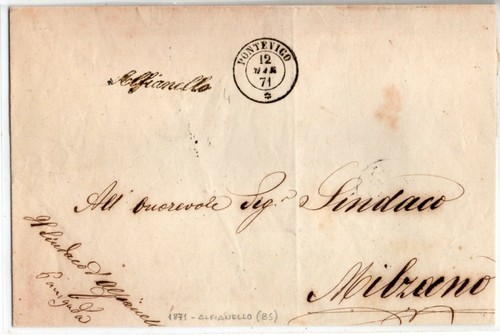 PONTEVICO
12
MAR
71
Alfianello
All' Onorevole Sigr. Sindaco
Milzano
Il Sindaco d'Alfianello
1871 - ALFIANELLO (BS)